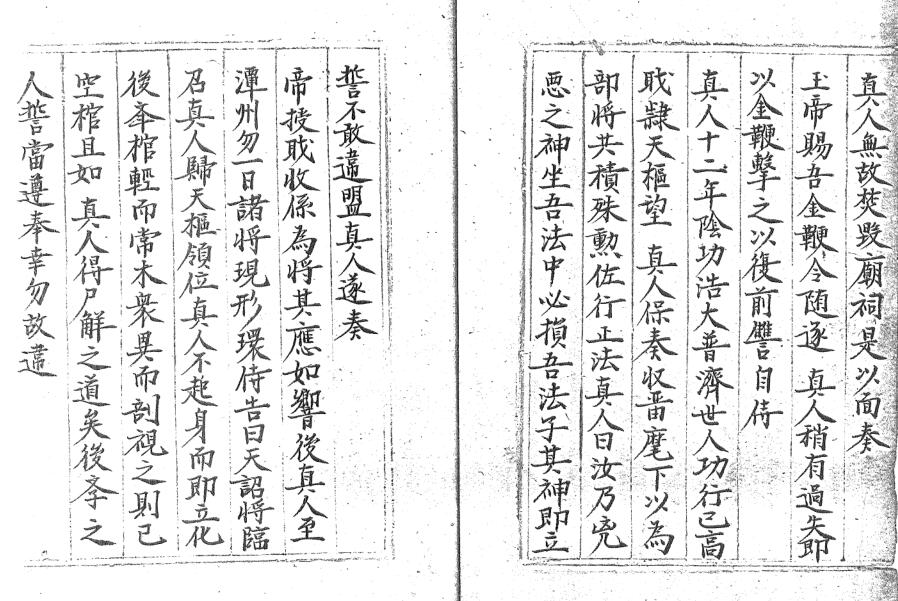 真人無故焚毀廟祠是以面奏
玉帝賜吾金鞭令随逐 真人稍有過失即
以金鞭擊之以復前讐自侍
真人十二年陰功浩大普濟世人功行已高
職隸天樞望 真人保奏収畄麾下以為
部將共積殊勳佐行正法真人曰汝乃兇
悪之神坐吾法中必損吾法子其神即立
誓不敢違盟真人遂奏
帝授職收係為將其應如響後真人至
潭州勿一日諸將現形環侍告曰天詔將臨
召真人歸天樞領位真人不起身而即立化
後奉棺輕而常木衆異而剖視之則已
空棺且如 真人得尸解之道矣後奉之
人誓當遵奉幸勿故違